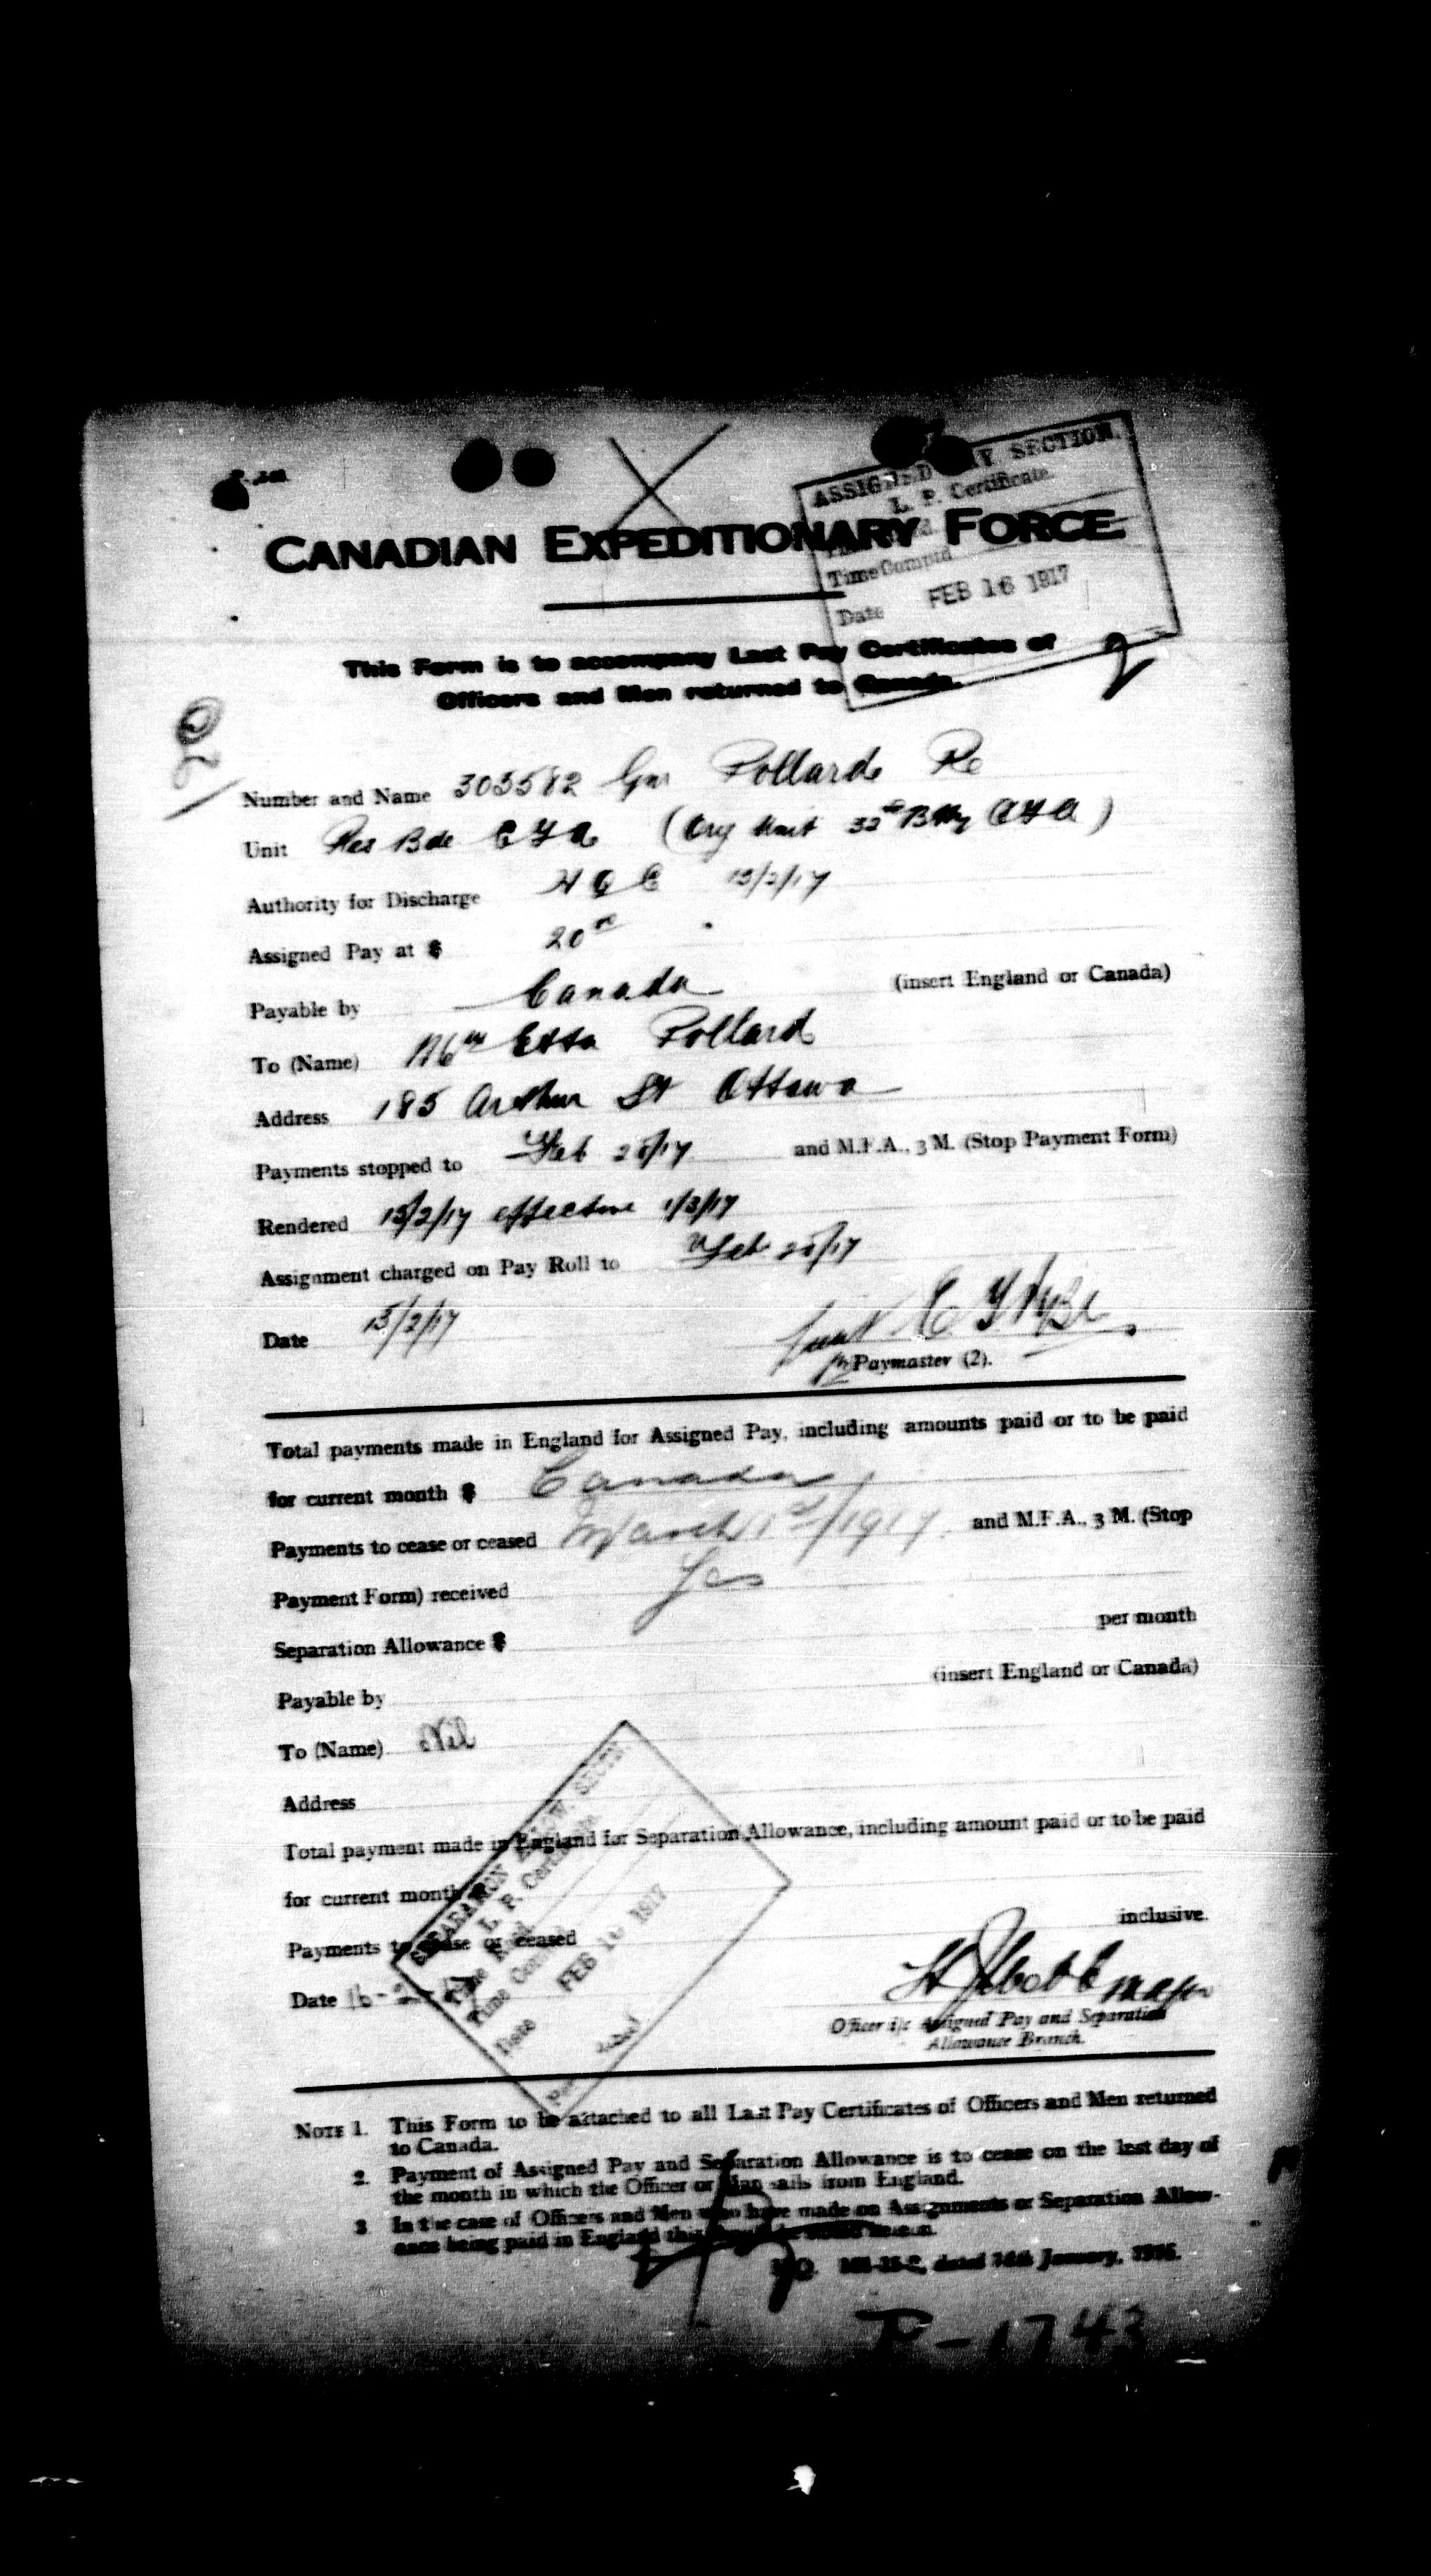 ASSIGNED PAY SECTION.
L. P. Certificate.
CANADIAN EXPEDITIONARY FORCE
Time Comptd
Date FEB 16 1917
This Form is to accompany Last Pay Certificates of
Officers and Men returned to Canada.
Number and Name 303582 Gnr Pollard. R
Unit Res Bde C F A (Org Unit 32nd Btty C F A)
Authority for Discharge 13/2/17
Assigned Pay at $ 20
Payable by Canada (insert England or Canada)
To (Name) Etta Pollard
Address 185 Arthur St Ottawa
Payments stopped to Feb 28/17 and M.F.A., 3 M. (Stop Payment Form)
Rendered 15/2/17 effective 1/3/17
Assignment charged on Pay Roll to Feb 28/17
Date 15/2/17
Paymaster (2).
Total payments made in England for Assigned Pay, including amounts paid or to be paid
for current month $ Canada
Payments to cease or ceased March 1st/1917. and M.F.A., 3 M. (Stop
Payment Form) received Yes
Separation Allowance $ per month
Payable by (insert England or Canada)
To (Name) Nil
Address
Total payment made in England for Separation Allowance, including amount paid or to be paid
for current month $
Payments to cease or ceased inclusive.
Date 16-2-17
SEPARATION ALLOW. SECTN.
L. P. Certificate
Time Comptd
Date FEB 16 1917
Major
Officer i/c Assigned Pay and Separation
Allowance Branch.
NOTE 1. This Form to be attached to all Last Pay Certificates of Officers and Men returned
to Canada.
2. Payment of Assigned Pay and Separation Allowance is to cease on the last day of
the month in which the Officer or Man sails from England.
3 In the case of Officers and Men who have made no Assignments or Separation Allow-
ance being paid in England this
dated January,
P-1743